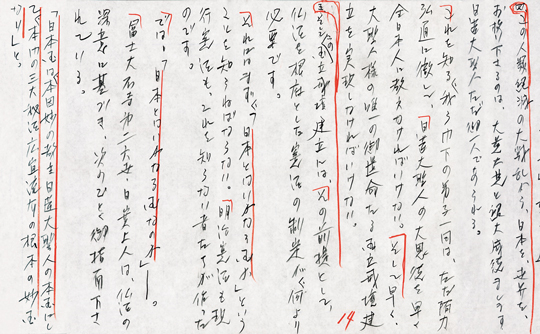 の人類絶滅の大戦乱から、日本を、世界を、
お救い下さるのは、大慈大悲と絶大威徳まします
日蓮大聖人ただ御一人であられる。
「これを知る我ら門下の弟子一同は、ただ身力
弘通に徹し、「日蓮大聖人の大恩徳を早く
全日本人に教えなければいけない。「そして早く
大聖人様の唯一の御遺命たる国立戒壇建
立を実現しなければいけない。
国立戒壇建立には、「その前提として
仏法を根底とした憲法の制定が、何より
必要です。
「それにはまず「日本とはいかなる国か」という
ことを知らねばならない。「明治憲法も現
行憲法も、これを知らない者たちが作った
のです。
では、「日本とはいかなる国なのか」―。
「富士大石寺第二十六世・日寛上人は、仏法の
深義に基づき、次のごとく御指南下さ
れている。
「日本国は本因妙の教主日蓮大聖人の本国にし
て本門の三大秘法広宣流布の根本の妙国
なり」と。
14